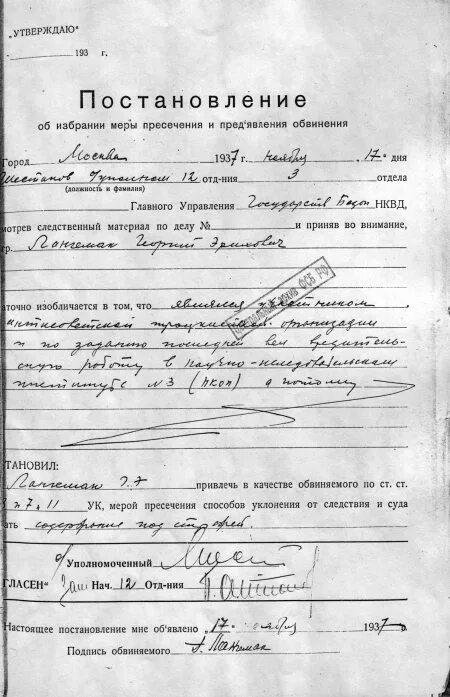 „УТВЕРЖДАЮ“
193 г.
Постановление
об избрании меры пресечения и пред'явления обвинения
Город Москва 1937 г. ноября 17 дня
12 отд-ния 3 отдела
(должность и фамилия)
Главного Управления Государств Безоп НКВД,
мотрев следственный материал по делу № и приняв во внимание,
гр. Лангемак Георгий Эрихович
ЦЕНТРАЛЬНЫЙ АРХИВ ФСБ РФ
аточно изобличается в том, что являлся участником
антисоветской троцкистской организации
и по заданию последней вел вредитель-
скую работу в научно-исследовательском
институте №3 (НКОП) а потому
ТАНОВИЛ:
Лангемак Г.Э. привлечь в качестве обвиняемого по ст. ст.
7 и 11 УК, мерой пресечения способов уклонения от следствия и суда
ать содержание под стражей.
Уполномоченный
ГЛАСЕН“ Зам Нач. 12 Отд-ния
Настоящее постановление мне об'явлено „17“ ноября 1937 г.
Подпись обвиняемого Г. Лангемак